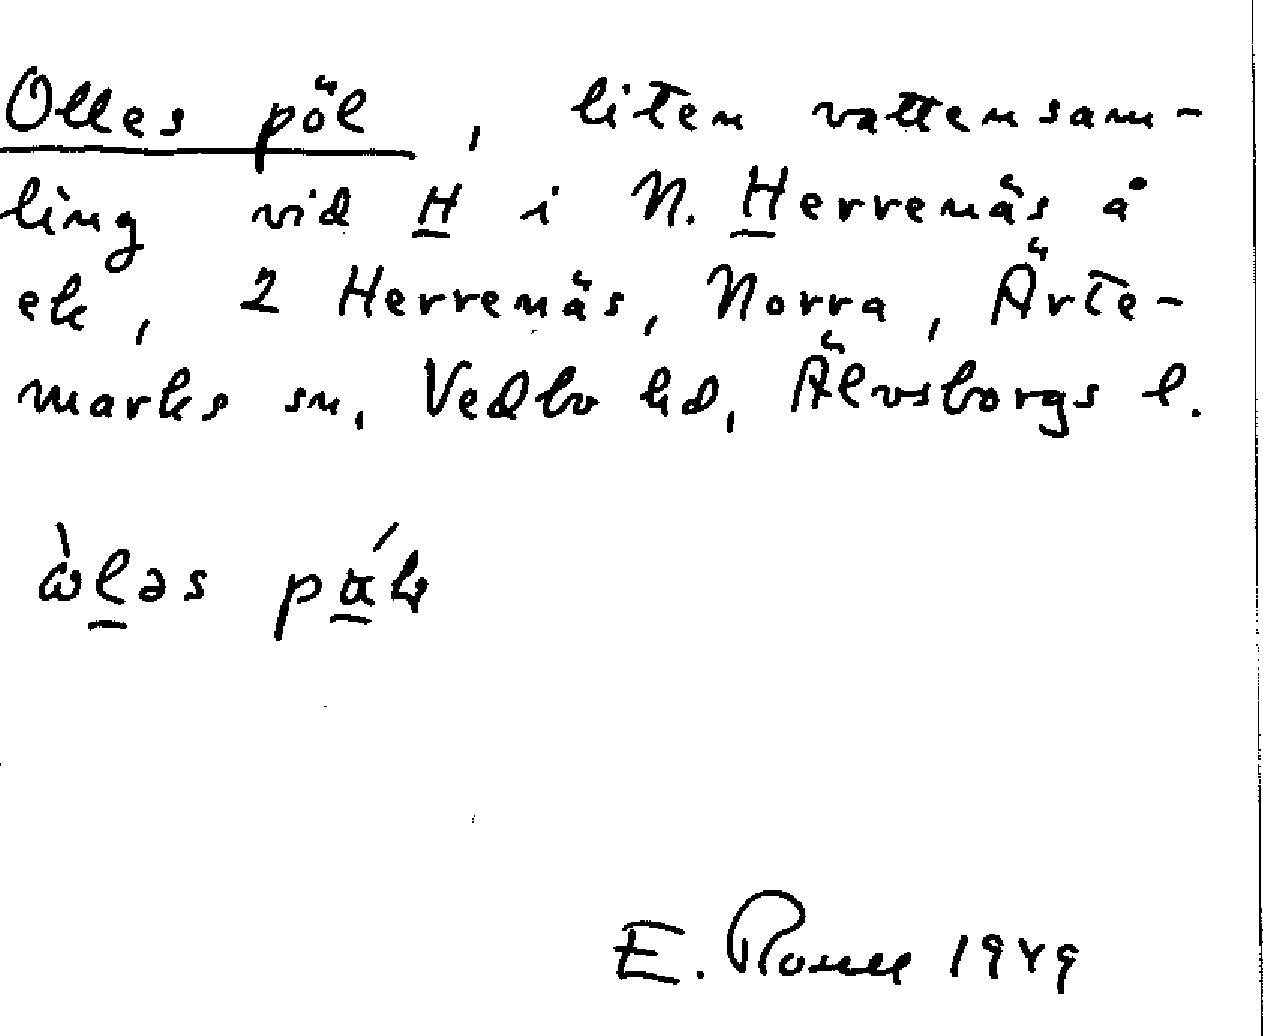 Olles pöl, liten vattensam-
ling vid H i N. Herrenäs å
ek, 2 Herrenäs, Norra, Ärte-
marks sn, Vedbo hd, Älvsborgs l.
E. 1949